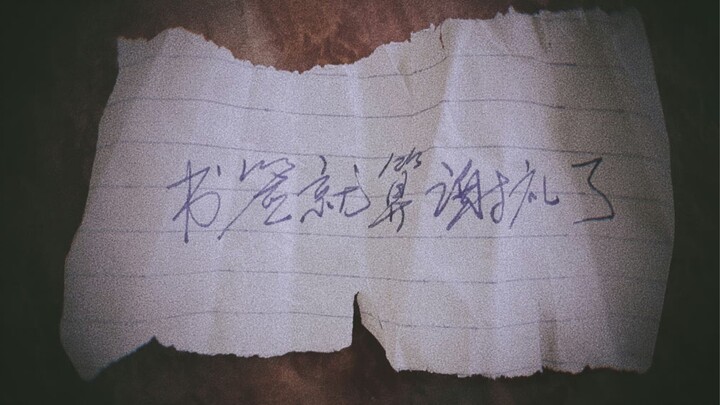 书签就算谢礼了